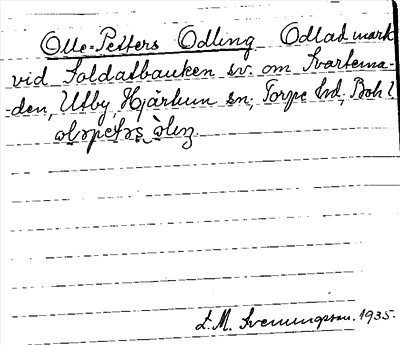 Olle-Petters Odling Odlad mark
vid Soldatbacken sv. om Svartema-
den, Utby, Hjärtum sn, Torpe hd, Boh l
L. M. Svenungsson. 1935.